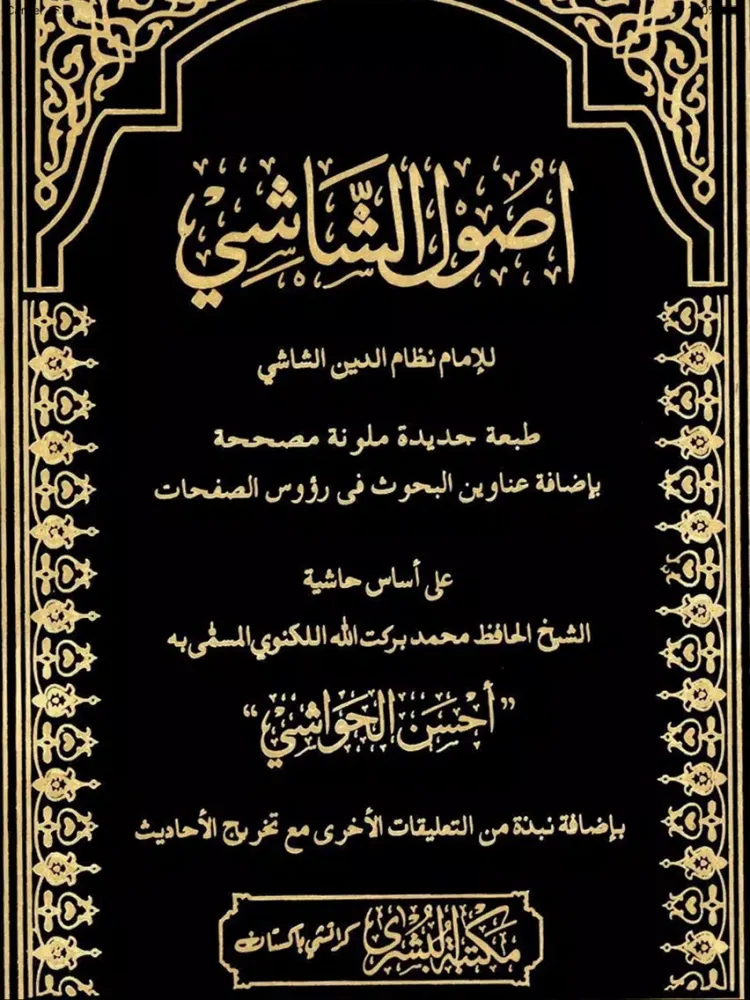 اُصُوْلُ الشَّاشِيْ
للإمام نظام الدين الشاشي
طبعة جديدة ملونة مصححة
بإضافة عناوين البحوث في رؤوس الصفحات
على أساس حاشية
الشيخ الحافظ محمد بركت الله اللكنوي المسمّى به
”أَحْسَنُ الحَوَاشِيْ“
بإضافة نبذة من التعليقات الأخرى مع تخريج الأحاديث
مكتبة البشرى
كراتشي باكستان